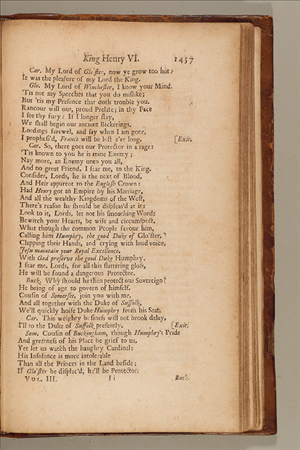 King Henry VI. 1457
Car. My Lord of Glo'ster, now ye grow too hot:
It was the pleasure of my Lord the King.
Glo. My Lord of Winchester, I know your Mind.
'Tis not my Speeches that you do mislike;
But 'tis my Presence that doth trouble you.
Rancour will out, proud Prelate; in thy Face
I see thy fury: If I longer stay,
We shall begin our ancient Bickerings.
Lordings farewel, and say when I am gone,
I prophesy'd, France will be lost e'er long. [Exit.
Car. So, there goes our Protector in a rage:
'Tis known to you he is mine Enemy;
Nay more, an Enemy unto you all,
And no great Friend, I fear me, to the King.
Consider, Lords, he is the next of Blood,
And Heir apparent to the English Crown:
Had Henry got an Empire by his Marriage,
And all the wealthy Kingdoms of the West,
There's reason he should be displeas'd at it:
Look to it, Lords, let not his smoothing Words
Bewitch your Hearts, be wife and circumspect.
What though the common People favour him,
Calling him Humphry, the good Duke of Glo'ster,
Clapping their Hands, and crying with loud voice,
Jesu maintain your Royal Excellence,
With God preserve the good Duke Humphry,
I fear me, Lords, for all this flattering gloss,
He will be found a dangerous Protector.
Buck. Why should he then protect our Sovereign?
He being of age to govern of himself.
Cousin of Somerset, join you with me,
And all together with the Duke of Suffolk,
We'll quickly hoise Duke Humphry from his Seat.
Car. This weighty business will not brook delay,
I'll to the Duke of Suffolk presently. [Exit.
Som. Cousin of Buckingham, though Humphry's Pride
And greatness of his Place be grief to us,
Yet let us watch the haughty Cardinal:
His Insolence is more intolerable
Than all the Princes in the Land beside;
If Glo'ster be displac'd, he'll be Protector.
VOL. III. Ii Buck.